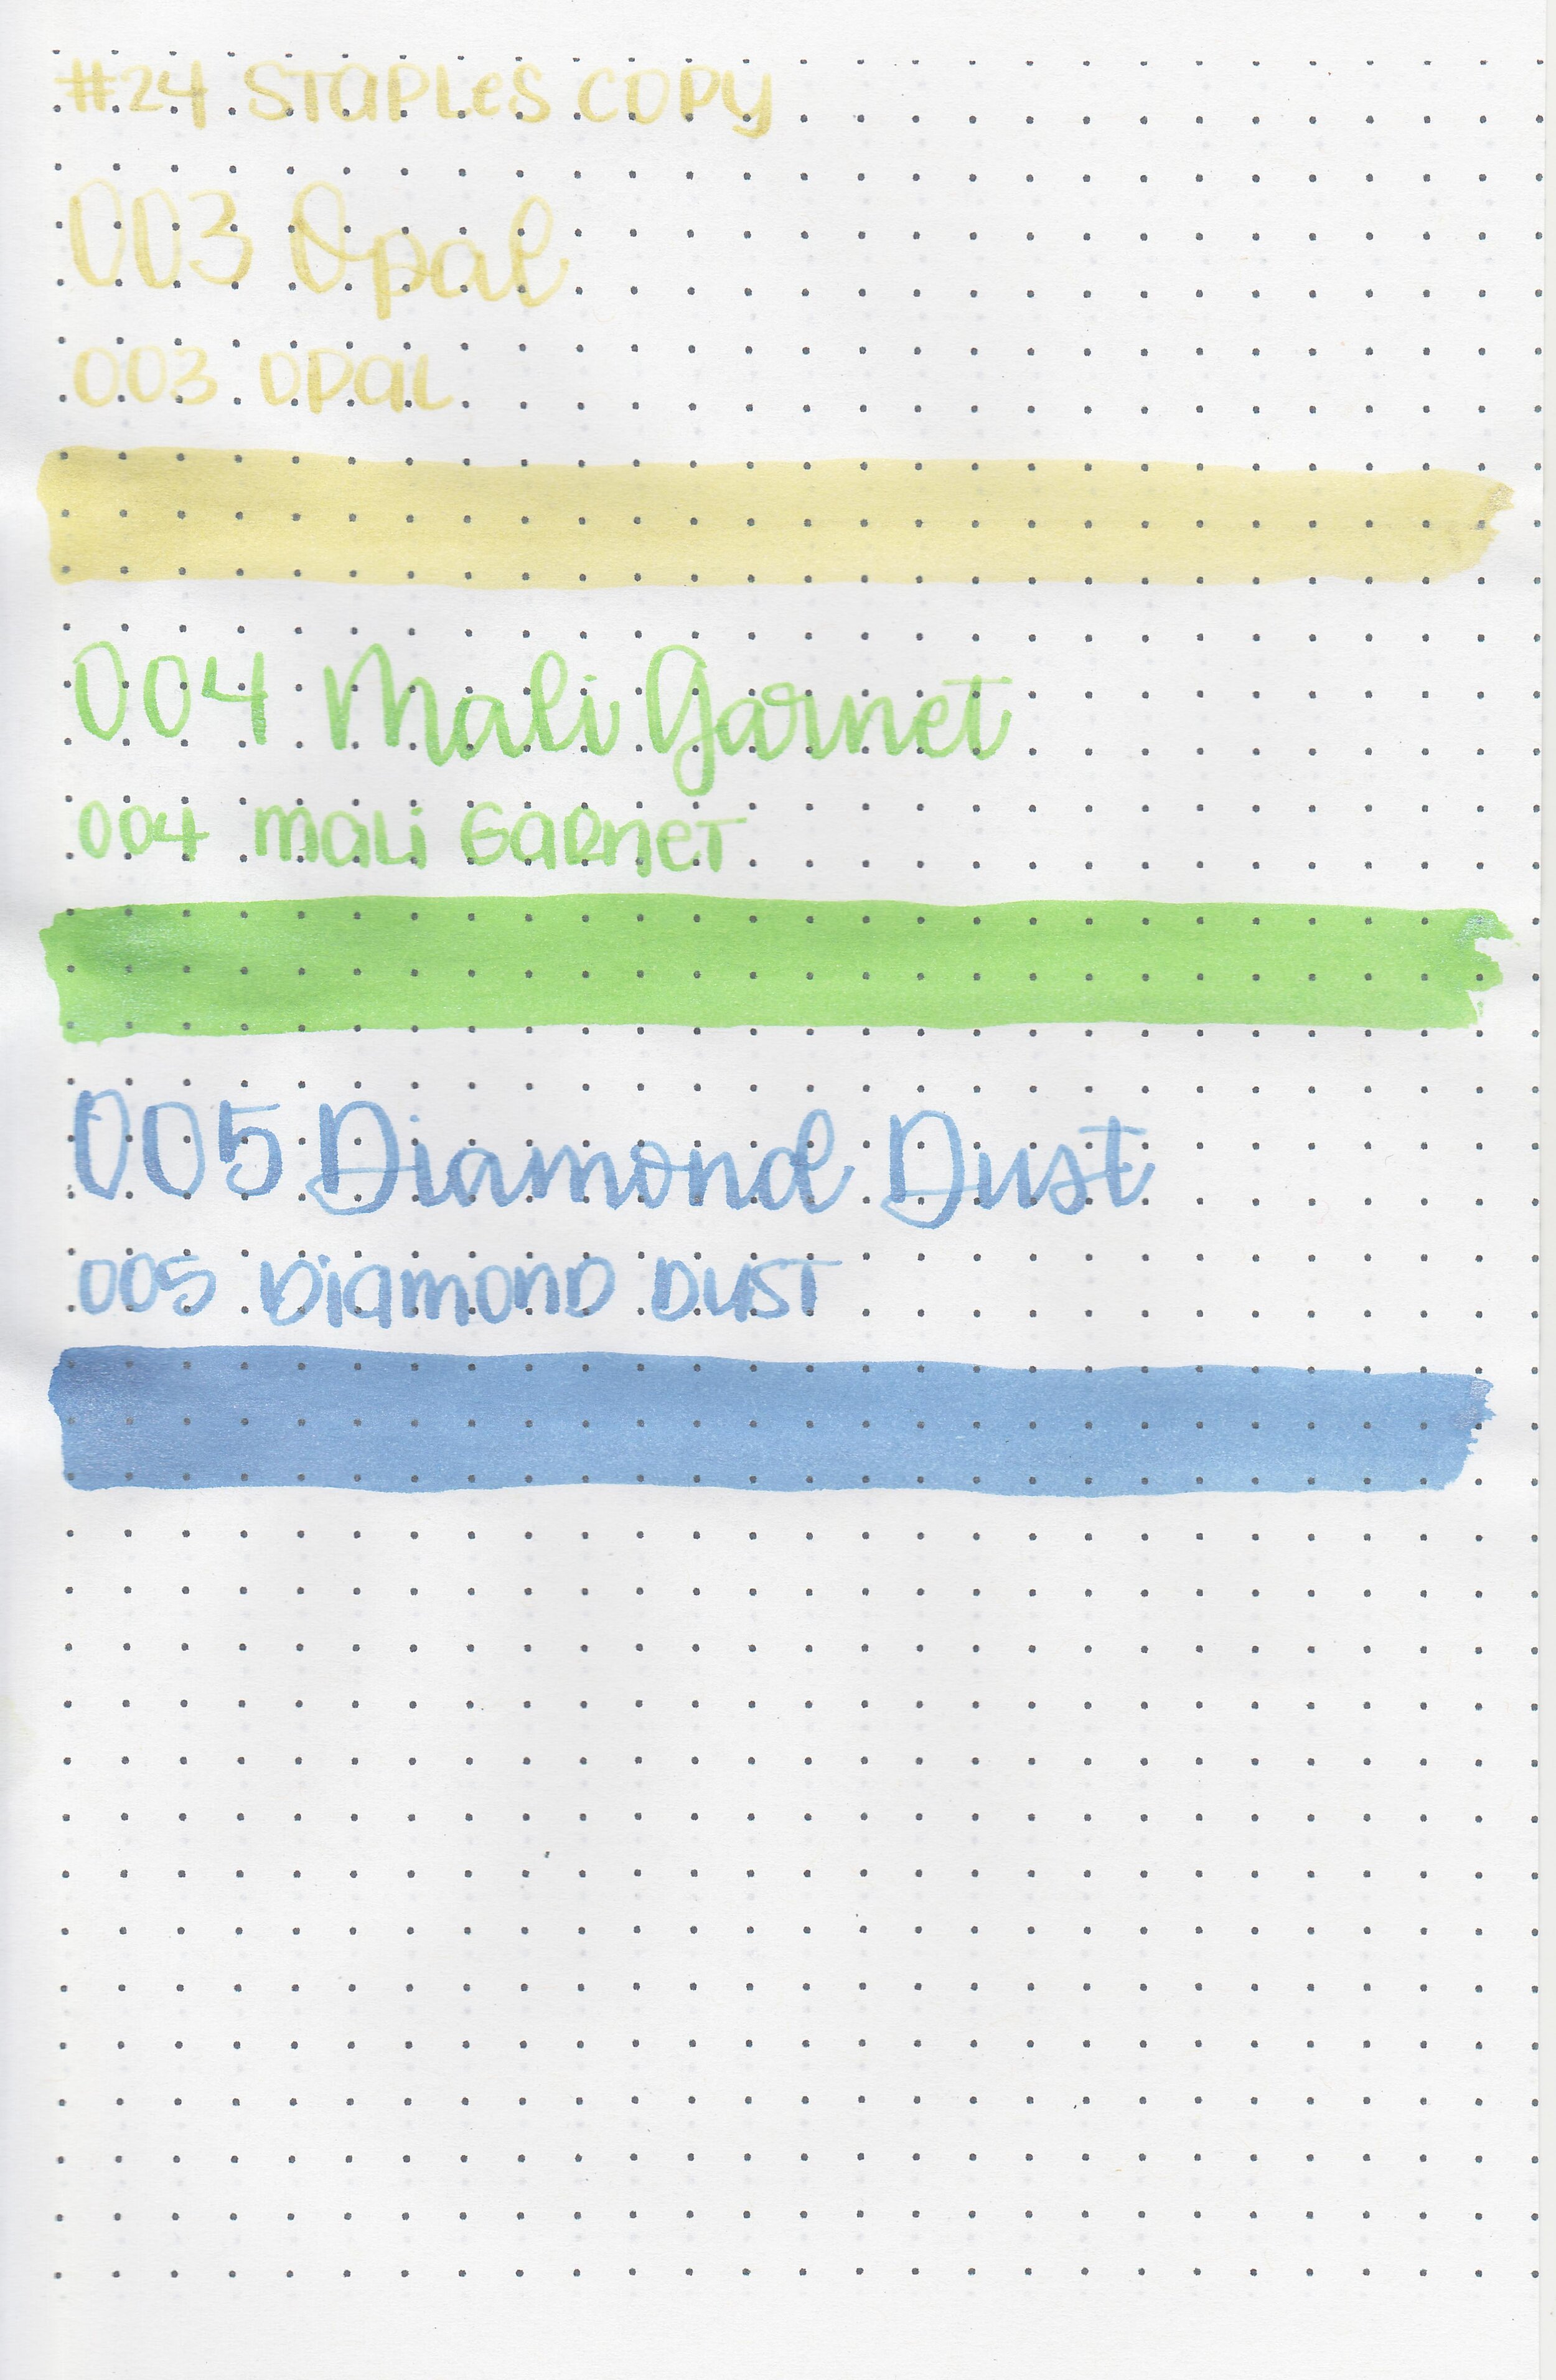 #24 STAPLES COPY
003 Opal
003 OPAL
004 Mali Garnet
004 Mali Garnet
005 Diamond Dust
005 Diamond Dust